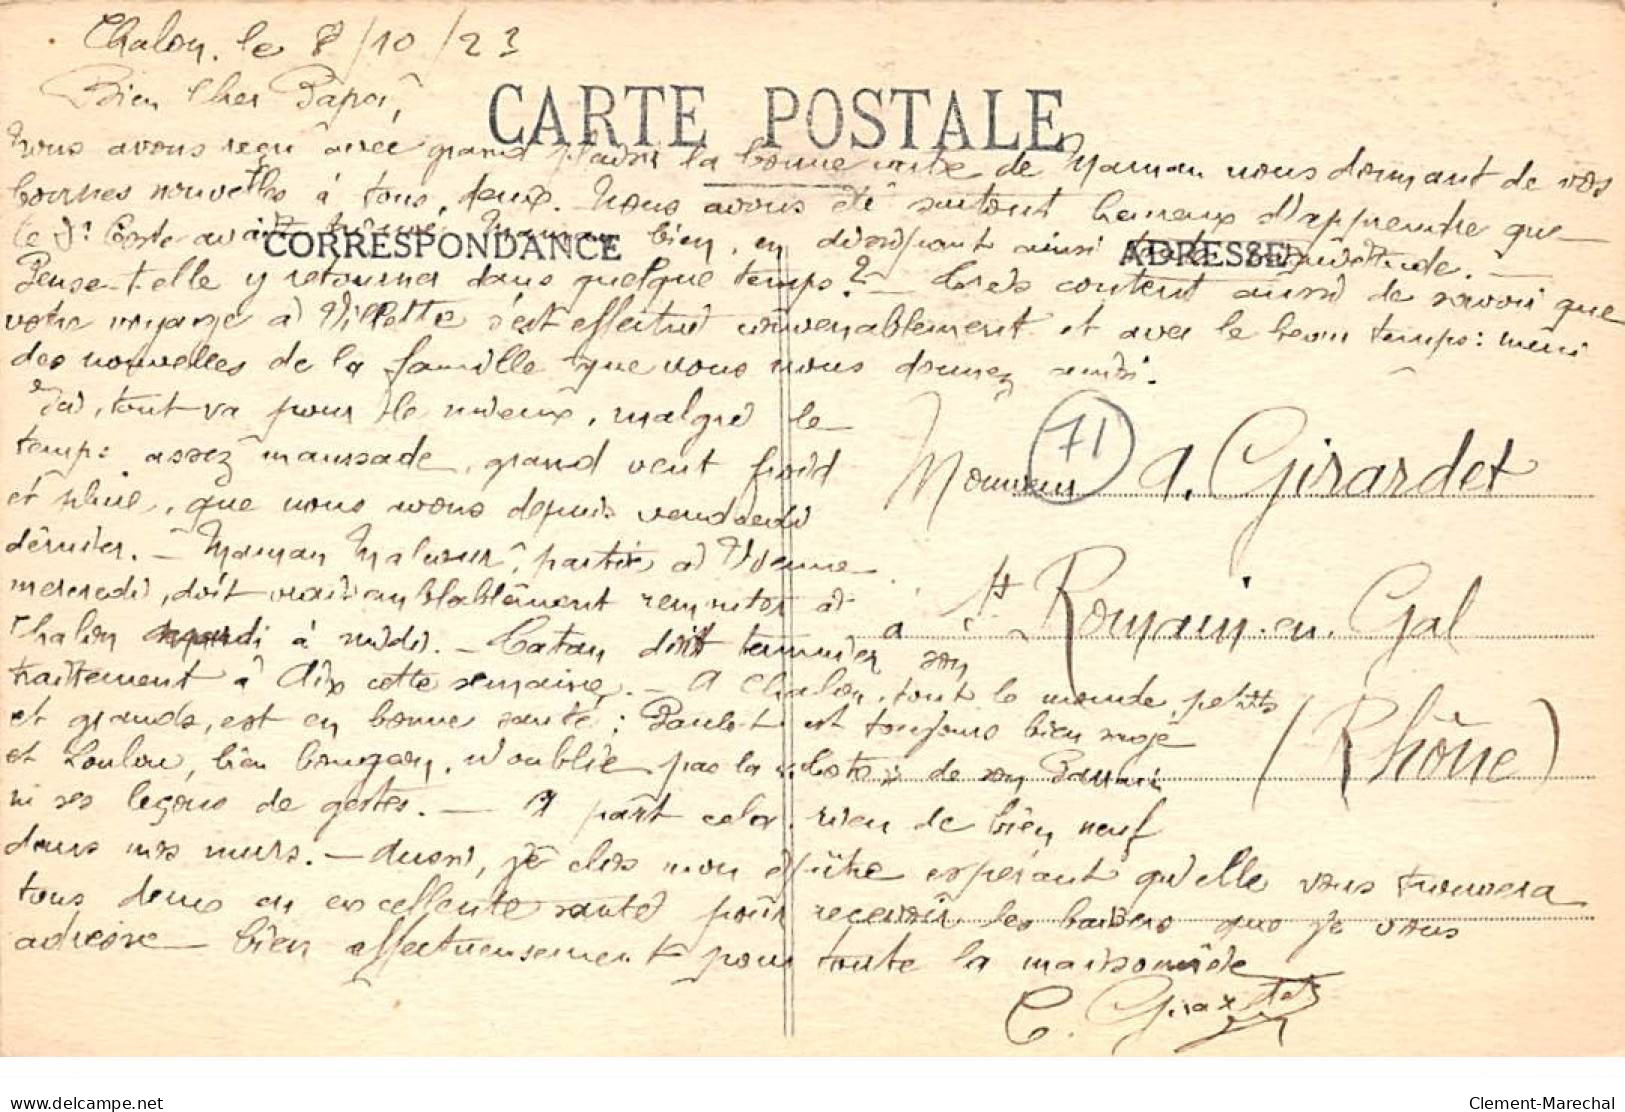 Chalon, le 8/10/23
Bien cher Papa,
CARTE POSTALE
Nous avons reçu avec grand plaisir la bonne carte de Maman nous donnant de vos
bonnes nouvelles à tous deux. Nous avons été surtout heureux d'apprendre que
le Dr Coste avait trouvé Maman bien, en dissipant ainsi toute inquiétude. —
CORRESPONDANCE
ADRESSE
Pense-t-elle y retourner dans quelque temps? — Très content aussi de savoir que
votre voyage à Villette s'est effectué convenablement et avec le beau temps: merci
des nouvelles de la famille que vous nous donnez ainsi.
Ici, tout va pour le mieux, malgré le
temps assez maussade, grand vent froid
et pluie, que nous avons depuis vendredi
dernier. — Maman partie à Vienne
mercredi, doit vraisemblablement remonter à
Chalon mardi à midi. — Tatan doit terminer son
traitement à Aix cette semaine. — A Chalon, tout le monde, petits
et grands, est en bonne santé; Paulet est toujours bien sage
et Loulou, bien n'oublie pas la de son Parrain
ni ses leçons de gestes. — A part cela, rien de bien neuf
dans nos murs. — Aussi, je clos mon épître espérant qu'elle vous trouvera
tous deux en excellente santé pour recevoir les baisers que je vous
adresse bien affectueusement pour toute la maisonnée
C. Girardet
71
Monsieur A. Girardet
à St Romain-en-Gal
(Rhône)
delcampe.net
Clement-Marechal